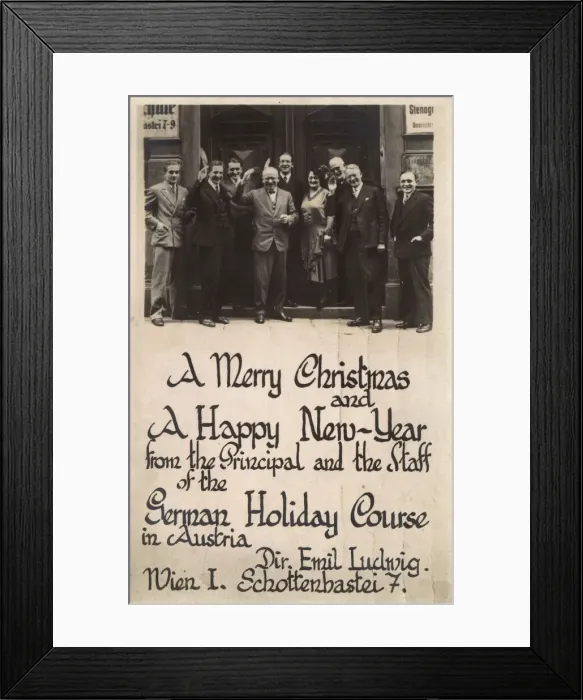 astei 7-9
Stenogr
A Merry Christmas
and
A Happy New-Year
from the Principal and the Staff
of the
German Holiday Course
in Austria
Dir. Emil Ludwig.
Wien I. Schottenbastei 7.